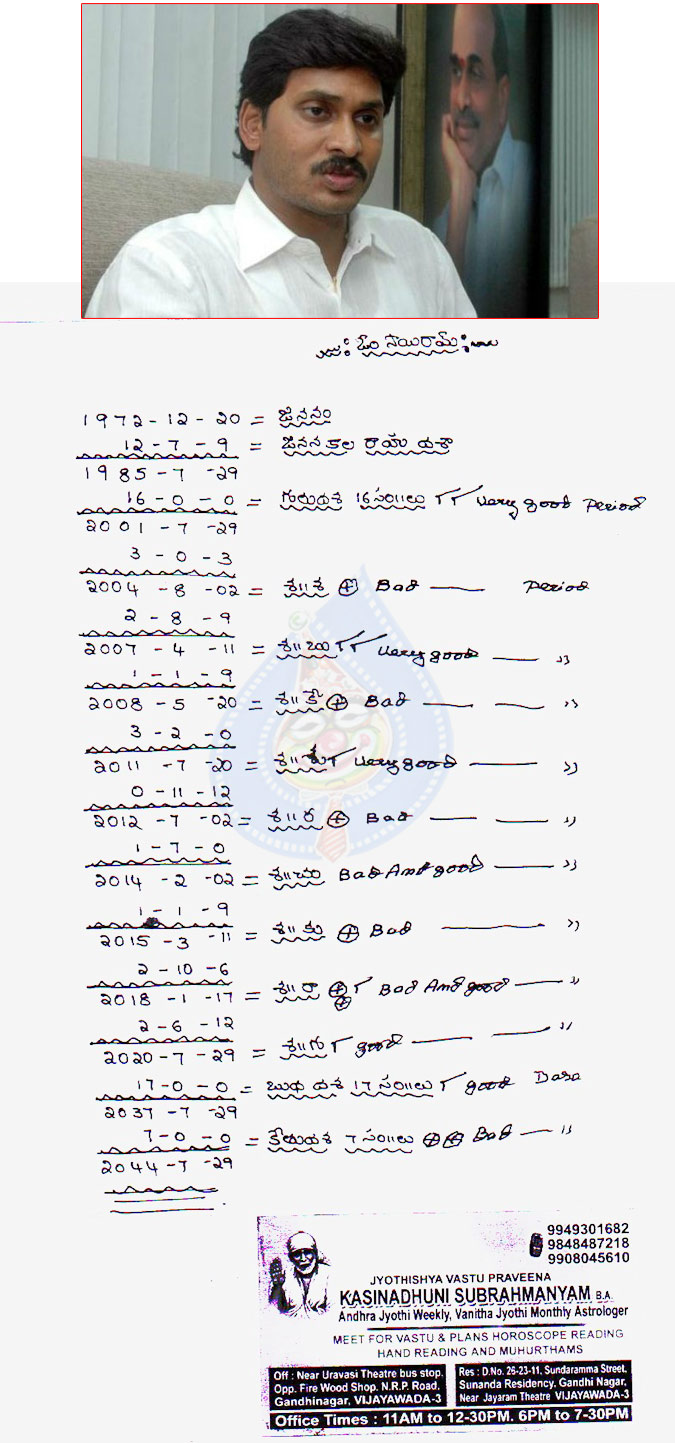 ఓం సాయిరామ్
1972-12-20 = జననం
12-7-9 = జననకాల రాహు దశా
1985-7-29
16-0-0 = గురుదశ 16 సం॥లు Very good Period
2001-7-29
3-0-3
2004-8-02 = శ॥శ ⊕ Bad — Period
2-8-9
2007-4-11 = శ॥బు Very good — ''
1-1-9
2008-5-20 = శ॥కే ⊕ Bad — — ''
3-2-0
2011-7-20 = శ॥శు Very good — ''
0-11-12
2012-7-02 = శ॥ర ⊕ Bad — — ''
1-7-0
2014-2-02 = శ॥చం Bad And good — ''
1-1-9
2015-3-11 = శ॥కు ⊕ Bad — ''
2-10-6
2018-1-17 = శ॥రా ⊕ ⊕ Bad And good — ''
2-6-12
2020-7-29 = శ॥గు good — — ''
17-0-0 = బుధ దశ 17 సం॥లు good Dasa
2037-7-29
7-0-0 = కేతుదశ 7 సం॥లు ⊕⊕ Bad — ''
2044-7-29
9949301682
9848487218
9908045610
JYOTHISHYA VASTU PRAVEENA
KASINADHUNI SUBRAHMANYAM B.A.
Andhra Jyothi Weekly, Vanitha Jyothi Monthly Astrologer
MEET FOR VASTU & PLANS HOROSCOPE READING
HAND READING AND MUHURTHAMS
Off : Near Uravasi Theatre bus stop.
Opp. Fire Wood Shop. N.R.P. Road,
Gandhinagar, VIJAYAWADA-3
Res : D.No. 26-23-11, Sundaramma Street,
Sunanda Residency, Gandhi Nagar,
Near Jayaram Theatre VIJAYAWADA-3
Office Times : 11AM to 12-30PM. 6PM to 7-30PM